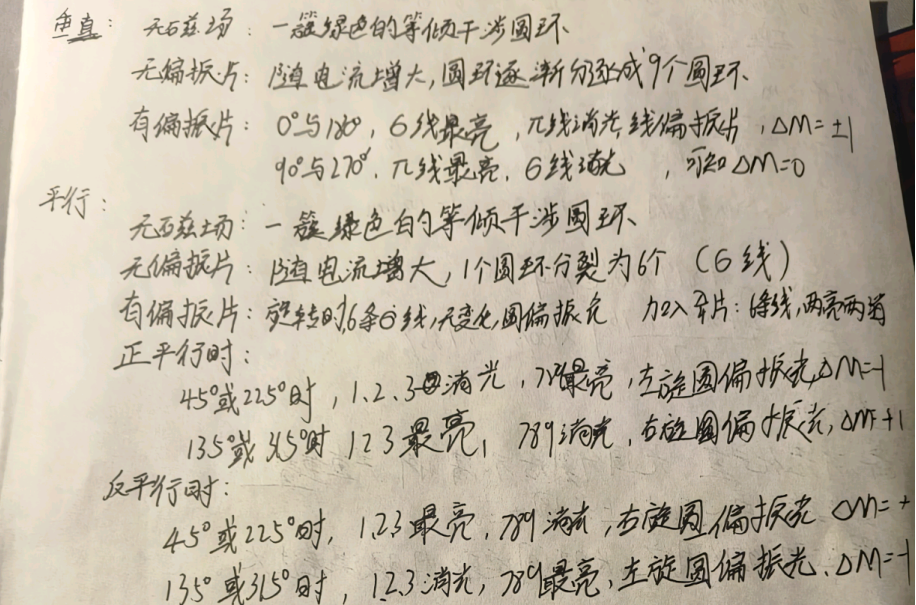 垂直: 无磁场: 一簇绿色的等倾干涉圆环
无偏振片: 随电流增大,圆环逐渐分裂成9个圆环
有偏振片: 0°与180°, σ线最亮, π线消光 线偏振片, ΔM=±1
90°与270°, π线最亮, σ线消光, 可知ΔM=0
平行:
无磁场: 一簇绿色的等倾干涉圆环
无偏振片: 随电流增大,1个圆环分裂为6个 (σ线)
有偏振片: 旋转时,6条σ线,无变化,圆偏振光 加入 片: 6条线,两亮两
正平行时:
45°或225°时, 1.2.3 消光, 789最亮, 左旋圆偏振光,ΔM=-1
135°或315°时 123最亮, 789消光, 右旋圆偏振光, ΔM=+1
反平行时:
45°或225°时, 123最亮, 789消光, 右旋圆偏振光 ΔM=+
135°或315°时, 123消光, 789最亮, 左旋圆偏振光. ΔM=-1